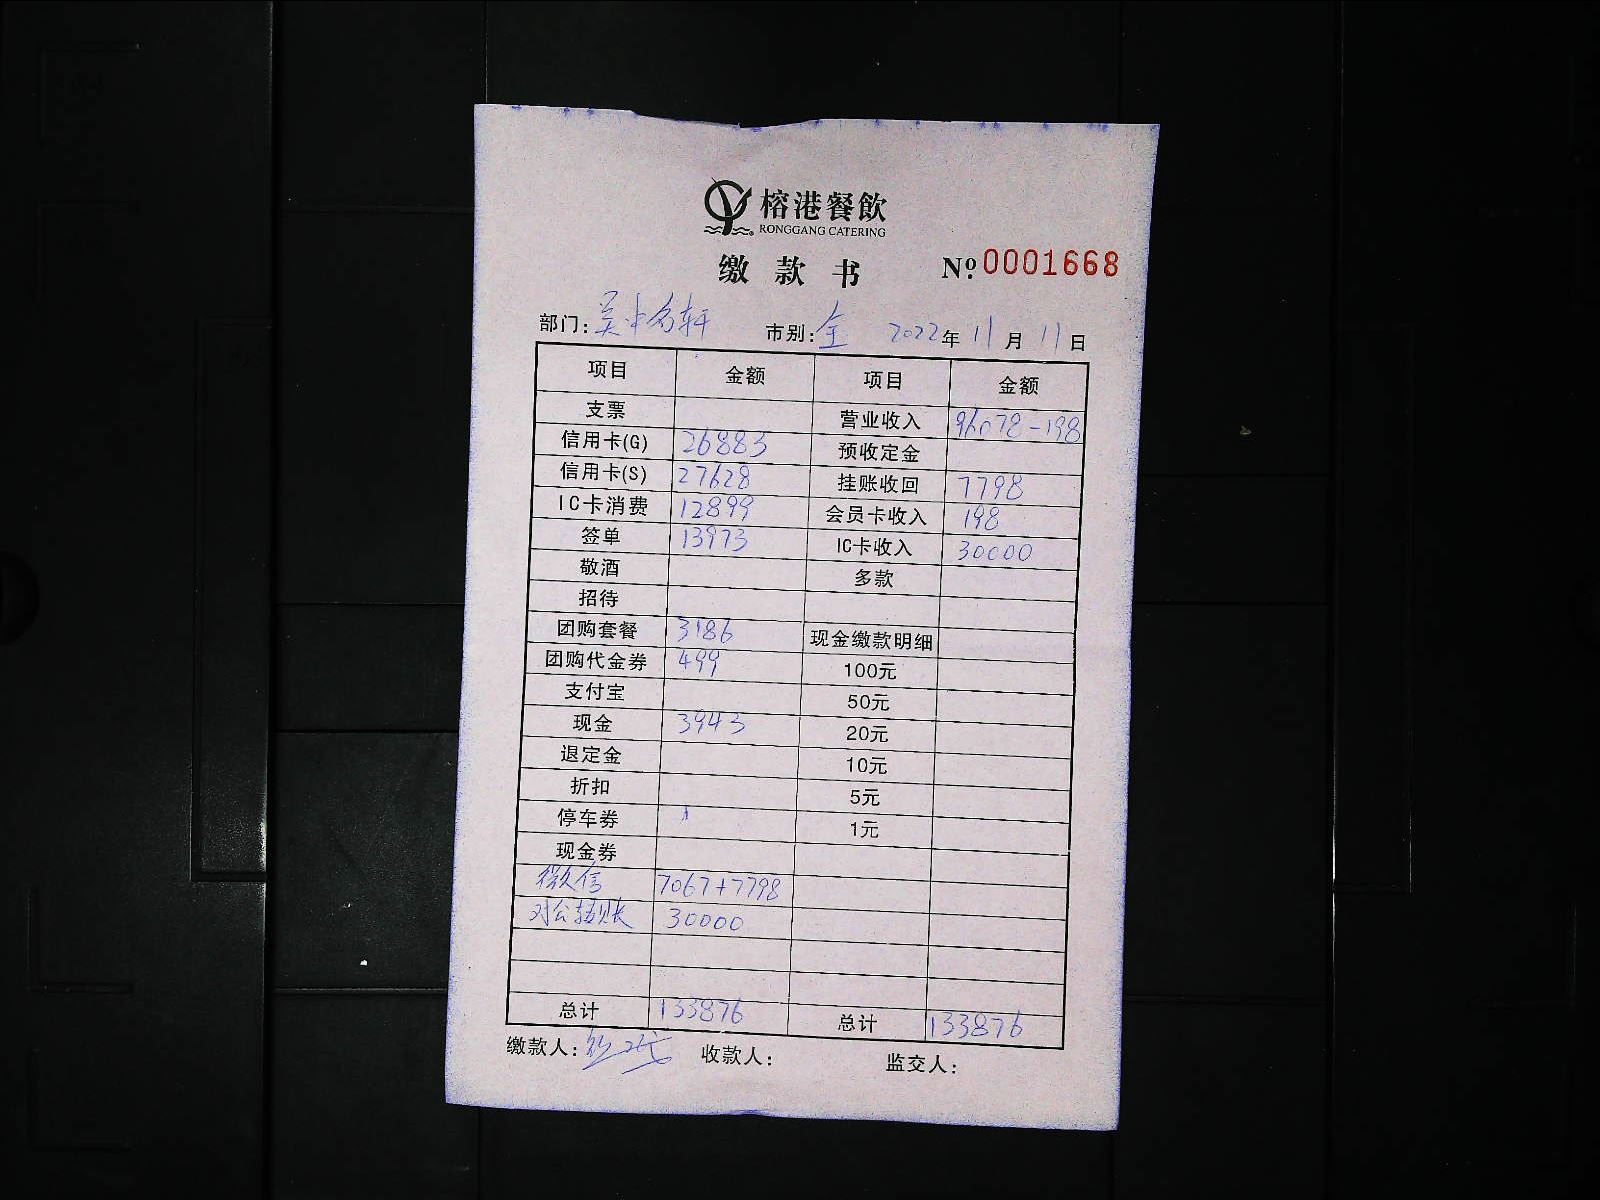 榕港餐飲
RONGGANG CATERING
缴款书 №0001668
部门: 吴中名轩 市别: 全 2022年11月11日
项目 金额 项目 金额
支票 营业收入 96078-198
信用卡(G) 26883 预收定金
信用卡(S) 27628 挂账收回 7798
IC卡消费 12899 会员卡收入 198
签单 13973 IC卡收入 30000
敬酒 多款
招待
团购套餐 3186 现金缴款明细
团购代金券 499 100元
支付宝 50元
现金 3943 20元
退定金 10元
折扣 5元
停车券 1元
现金券
微信 7067+7798
对公转账 30000
总计 133876 总计 133876
缴款人: 收款人: 监交人: